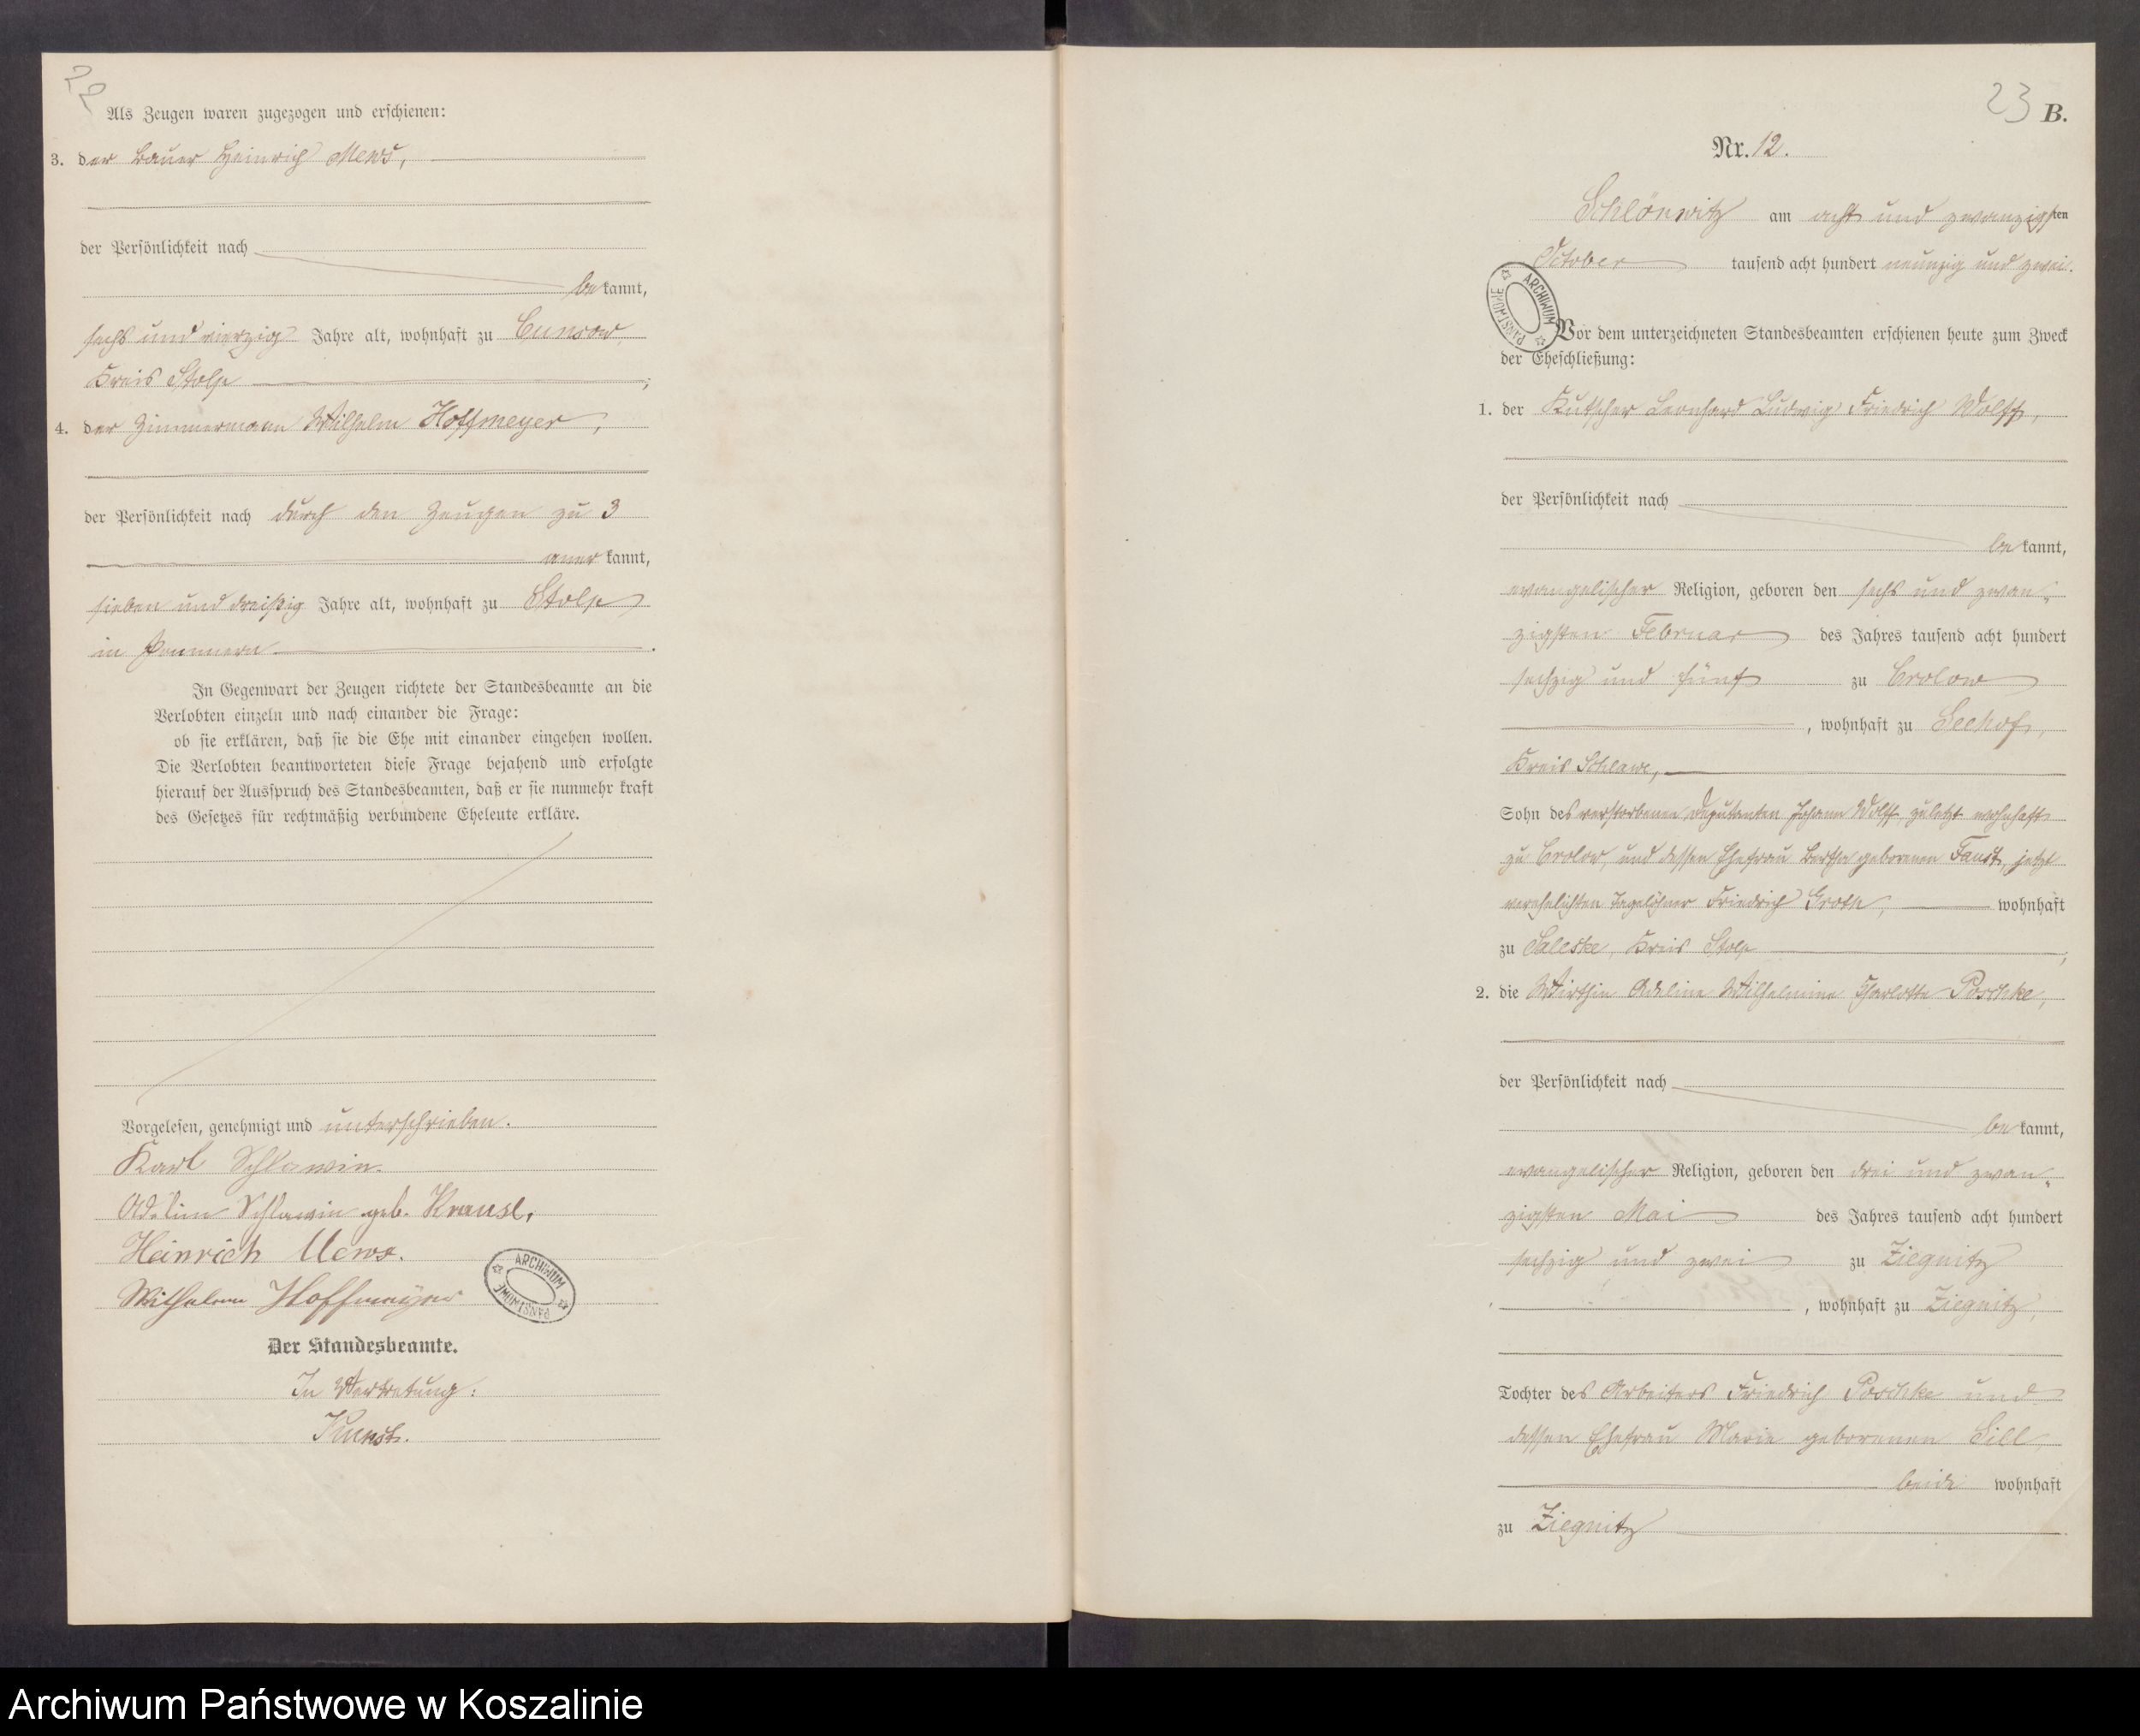 22
Als Zeugen waren zugezogen und erschienen:
3. der Bauer Heinrich Mews,
der Persönlichkeit nach
bekannt,
sechs und vierzig Jahre alt, wohnhaft zu Cunsow,
Kreis Stolp ;
4. der Zimmermann Wilhelm Hoffmeyer,
der Persönlichkeit nach durch den Zeugen zu 3
anerkannt,
sieben und dreißig Jahre alt, wohnhaft zu Stolp
in Pommern .
In Gegenwart der Zeugen richtete der Standesbeamte an die
Verlobten einzeln und nach einander die Frage:
ob sie erklären, daß sie die Ehe mit einander eingehen wollen.
Die Verlobten beantworteten diese Frage bejahend und erfolgte
hierauf der Ausspruch des Standesbeamten, daß er sie nunmehr kraft
des Gesetzes für rechtmäßig verbundene Eheleute erkläre.
Vorgelesen, genehmigt und unterschrieben.
Karl Schlawin.
Adeline Schlawin geb. Krause,
Heinrich Mews.
Wilhelm Hoffmeyer
ARCHIWUM PAŃSTWOWE
Der Standesbeamte.
In Vertretung:
Kunst.
23 B.
Nr. 12.
Schlönwitz am acht und zwanzigsten
October tausend acht hundert neunzig und zwei.
ARCHIWUM PAŃSTWOWE
Vor dem unterzeichneten Standesbeamten erschienen heute zum Zweck
der Eheschließung:
1. der Kutscher Leonhard Ludwig Friedrich Wolff,
der Persönlichkeit nach
bekannt,
evangelischer Religion, geboren den sechs und zwan-
zigsten Februar des Jahres tausend acht hundert
sechzig und fünf zu Crolow
, wohnhaft zu Seehof,
Kreis Schlawe,
Sohn des verstorbenen Deputanten Johann Wolff, zuletzt wohnhaft
zu Crolow, und dessen Ehefrau Bertha geborenen Faust, jetzt
verehelichten Tagelöhner Friedrich Groth, wohnhaft
zu Saleske, Kreis Stolp ,
2. die Wirthin Adeline Wilhelmine Charlotte Poschke,
der Persönlichkeit nach
bekannt,
evangelischer Religion, geboren den drei und zwan-
zigsten Mai des Jahres tausend acht hundert
sechzig und zwei zu Ziegnitz
, wohnhaft zu Ziegnitz,
Tochter des Arbeiters Friedrich Poschke und
dessen Ehefrau Marie geborenen Sill,
beide wohnhaft
zu Ziegnitz
Archiwum Państwowe w Koszalinie